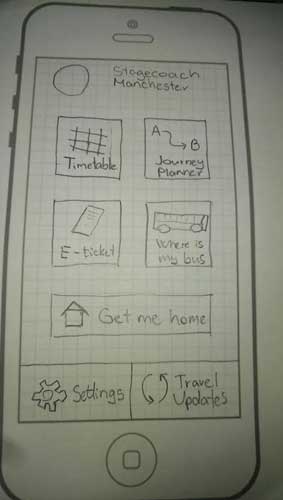 Stagecoach
Manchester
Timetable
A
B
Journey
Planner
E-ticket
Where is
my bus
Get me home
Settings
Travel
Updates